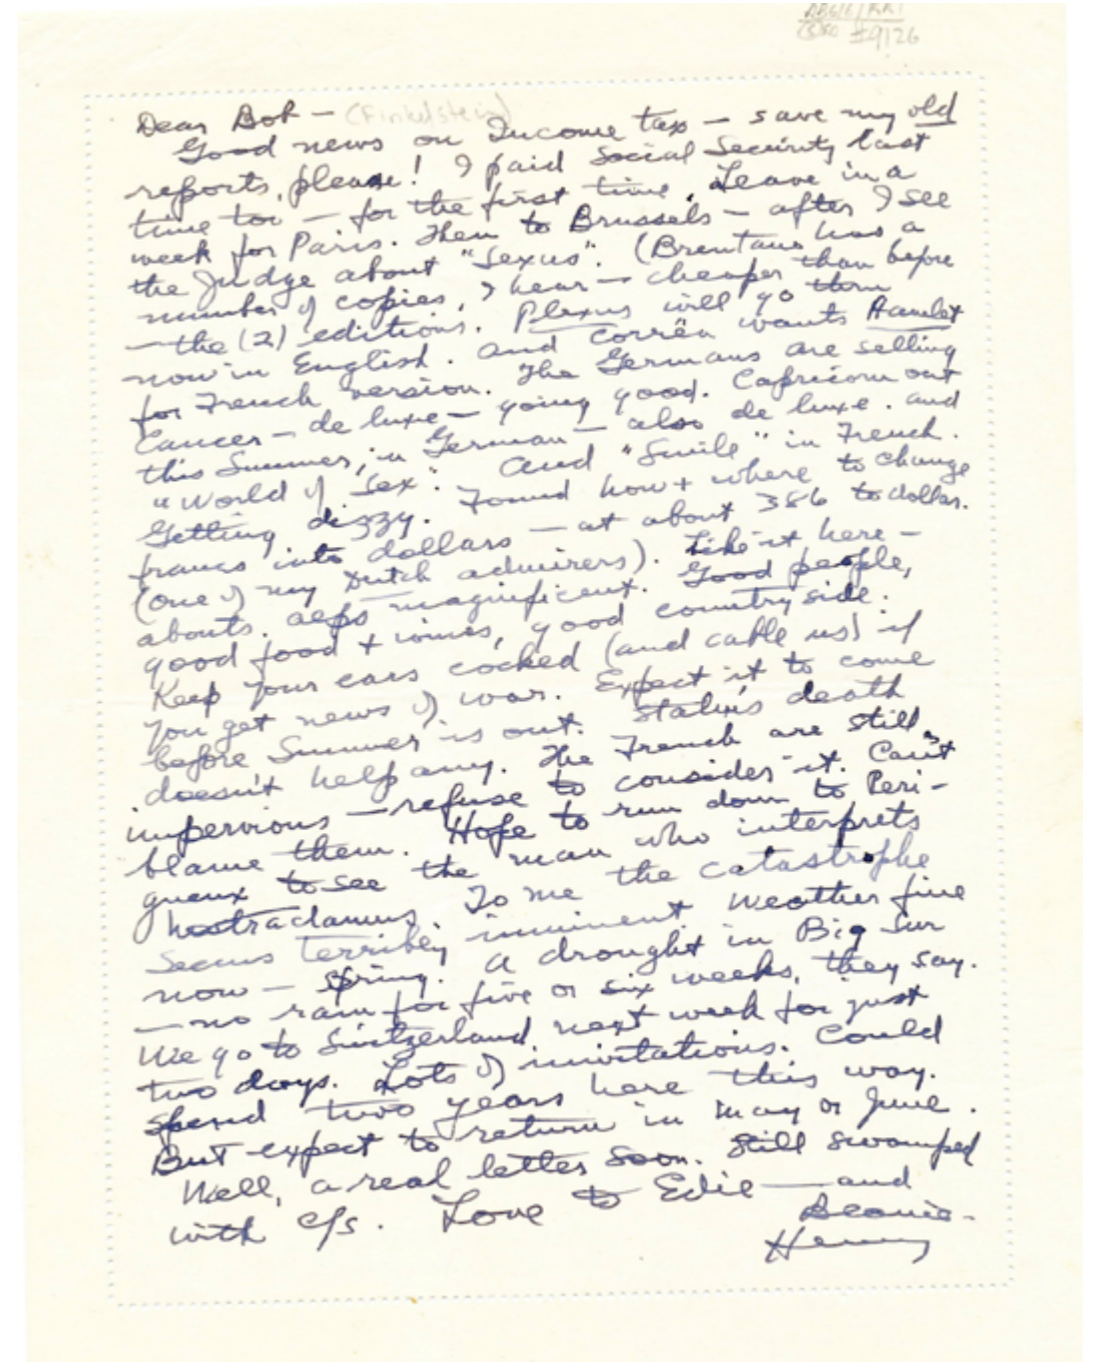 #9126
Dear Bob — (Finkelstein)
Good news on Income tax — save my old
reports, please! I paid Social Security last
time too — for the first time. Leave in a
week for Paris. Then to Brussels — after I see
the Judge about "Sexus". (Brentano has a
number of copies, I hear — cheaper than before
— the (2) editions. Plexus will go
now in English. And Corrêa wants Hamlet
for French version. The Germans are selling
Cancer — de luxe — going good. Capricorn out
this Summer, in German — also de luxe. and
"World of Sex". And "Smile" in French.
Getting dizzy. Found how + where to change
francs into dollars — at about 386 to dollar.
(one of my Dutch admirers). Like it here —
abouts. magnificent. Good people,
good food + wines, good countryside.
Keep your ears cocked (and cable us) if
you get news of war. Expect it to come
before Summer is out. Stalin's death
doesn't help any. The French are still
impervious — refuse to consider it. Can't
blame them. Hope to run down to Peri-
gueux to see the man who interprets
Nostradamus. To me the catastrophe
seems terribly imminent. Weather fine
now — Spring. A drought in Big Sur
— no rain for five or six weeks, they say.
We go to Switzerland next week for just
two days. Lots of invitations. Could
spend two years here this way.
But expect to return in May or June.
Well, a real letter soon. Still swamped
with c/s. Love to Edie — and
Henry